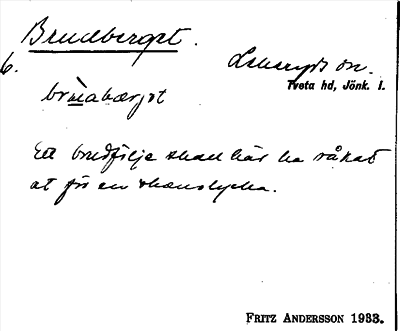 Brudberget.
6.
Lekeryds sn.
Tveta hd, Jönk. l.
Ett brudfölje skall här ha råkat
ut för en olycka.
FRITZ ANDERSSON 1933.